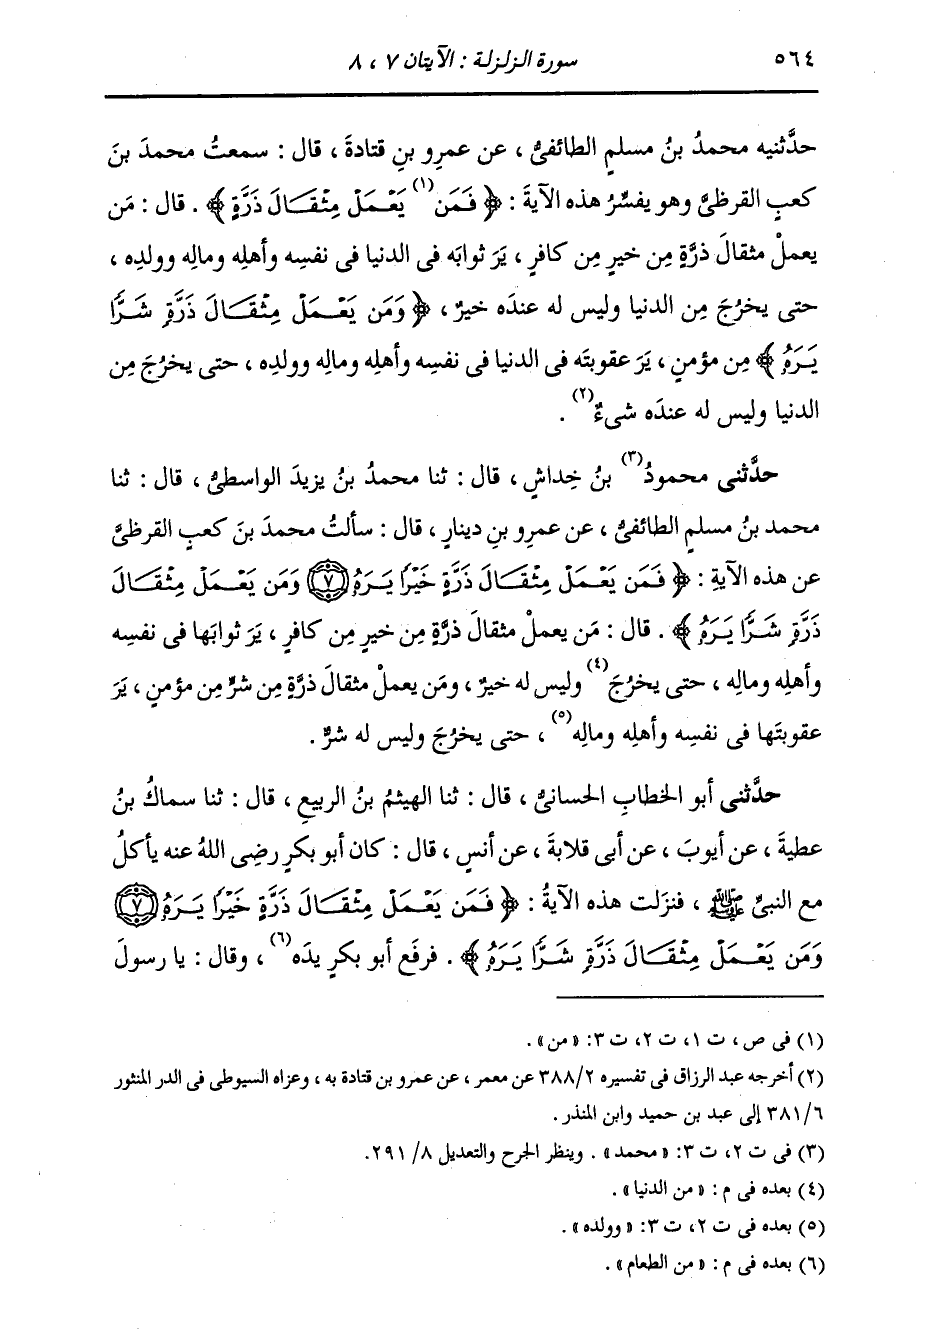 ٥٦٤ سورة الزلزلة : الآيتان ٧ ، ٨
حدَّثنيه محمدُ بنُ مسلمٍ الطائفىُّ ، عن عمرِو بنِ قتادةَ ، قال : سمعتُ محمدَ بنَ
كعبٍ القرظىَّ وهو يفسِّرُ هذه الآيةَ : ﴿ فَمَن(١) يَعْمَلْ مِثْقَالَ ذَرَّةٍ ﴾ . قال : مَن
يعملْ مثقالَ ذرَّةٍ مِن خيرٍ مِن كافرٍ ، يَرَ ثوابَه فى الدنيا فى نفسِه وأهلِه ومالِه وولدِه ،
حتى يخرُجَ مِن الدنيا وليس له عندَه خيرٌ ، ﴿ وَمَن يَعْمَلْ مِثْقَالَ ذَرَّةٍ شَرًّا
يَرَهُ ﴾ مِن مؤمنٍ ، يَرَ عقوبتَه فى الدنيا فى نفسِه وأهلِه ومالِه وولدِه ، حتى يخرُجَ مِن
الدنيا وليس له عندَه شىءٌ(٢) .
حدَّثنى محمودُ(٣) بنُ خِداشٍ ، قال : ثنا محمدُ بنُ يزيدَ الواسطىُّ ، قال : ثنا
محمد بنُ مسلمٍ الطائفىُّ ، عن عمرِو بنِ دينارٍ ، قال : سألتُ محمدَ بنَ كعبٍ القرظىَّ
عن هذه الآيةِ : ﴿ فَمَن يَعْمَلْ مِثْقَالَ ذَرَّةٍ خَيْرًا يَرَهُ ﴿٧﴾ وَمَن يَعْمَلْ مِثْقَالَ
ذَرَّةٍ شَرًّا يَرَهُ ﴾ . قال : مَن يعملْ مثقالَ ذرَّةٍ مِن خيرٍ مِن كافرٍ ، يَرَ ثوابَها فى نفسِه
وأهلِه ومالِه ، حتى يخرُجَ(٤) وليس له خيرٌ ، ومَن يعملْ مثقالَ ذرَّةٍ مِن شرٍّ مِن مؤمنٍ ، يَرَ
عقوبتَها فى نفسِه وأهلِه ومالِه(٥) ، حتى يخرُجَ وليس له شرٌّ .
حدَّثنى أبو الخطابِ الحسانىُّ ، قال : ثنا الهيثمُ بنُ الربيعِ ، قال : ثنا سماكُ بنُ
عطيةَ ، عن أيوبَ ، عن أبى قلابةَ ، عن أنسٍ ، قال : كان أبو بكرٍ رضى اللهُ عنه يأكلُ
مع النبىِّ ﷺ ، فنزلت هذه الآيةُ : ﴿ فَمَن يَعْمَلْ مِثْقَالَ ذَرَّةٍ خَيْرًا يَرَهُ ﴿٧﴾
وَمَن يَعْمَلْ مِثْقَالَ ذَرَّةٍ شَرًّا يَرَهُ ﴾ . فرفَع أبو بكرٍ يدَه(٦) ، وقال : يا رسولَ
(١) فى ص ، ت ١، ت ٢، ت ٣: « من » .
(٢) أخرجه عبد الرزاق فى تفسيره ٣٨٨/٢ عن معمر ، عن عمرو بن قتادة به ، وعزاه السيوطى فى الدر المنثور
٣٨١/٦ إلى عبد بن حميد وابن المنذر .
(٣) فى ت ٢، ت ٣: « محمد » . وينظر الجرح والتعديل ٨/ ٢٩١.
(٤) بعده فى م : « من الدنيا » .
(٥) بعده فى ت ٢، ت ٣: « وولده » .
(٦) بعده فى م : « من الطعام » .